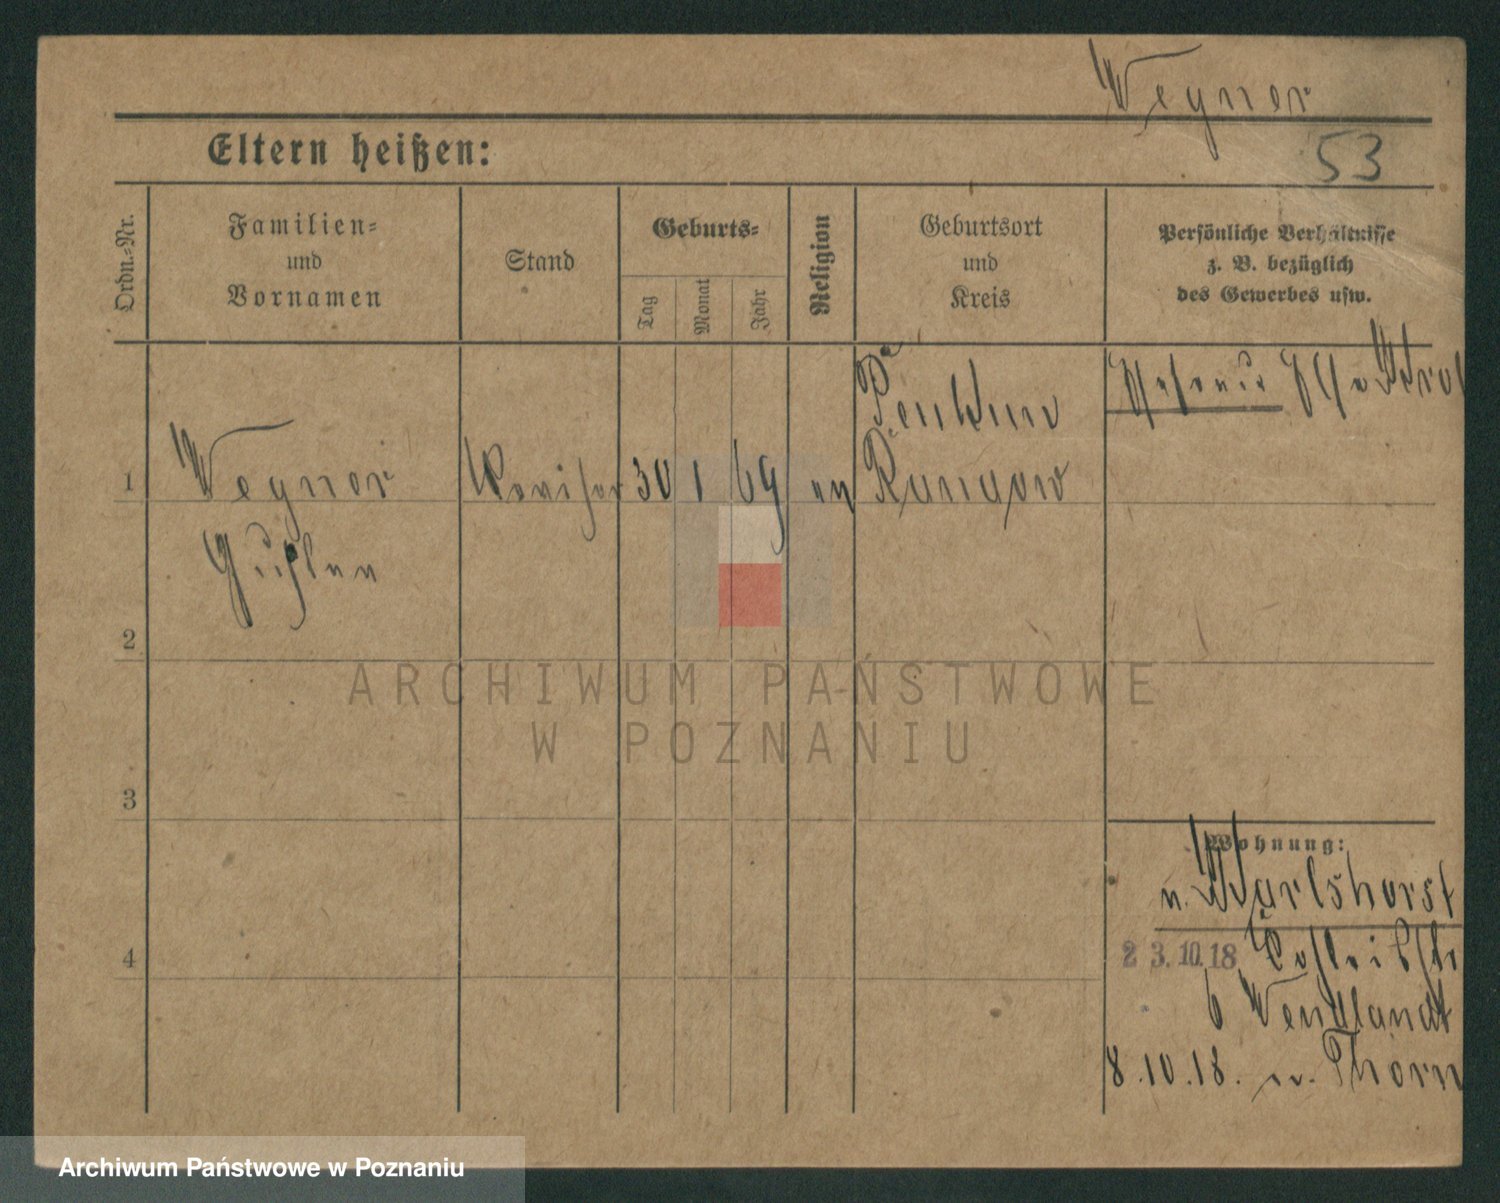 Wegner
53
Eltern heißen:
Ordn.-Nr.
Familien-
und
Vornamen
Stand
Geburts-
Tag
Monat
Jahr
Religion
Geburtsort
und
Kreis
Persönliche Verhältnisse
z. B. bezüglich
des Gewerbes usw.
Penkun
1 Wegner 30 1 69 Randow
Gustav
2
3
4
Wohnung:
n. Karlshorst
23.10.18
6 Wendlandt
8.10.18. Thorn
ARCHIWUM PAŃSTWOWE
W POZNANIU
Archiwum Państwowe w Poznaniu